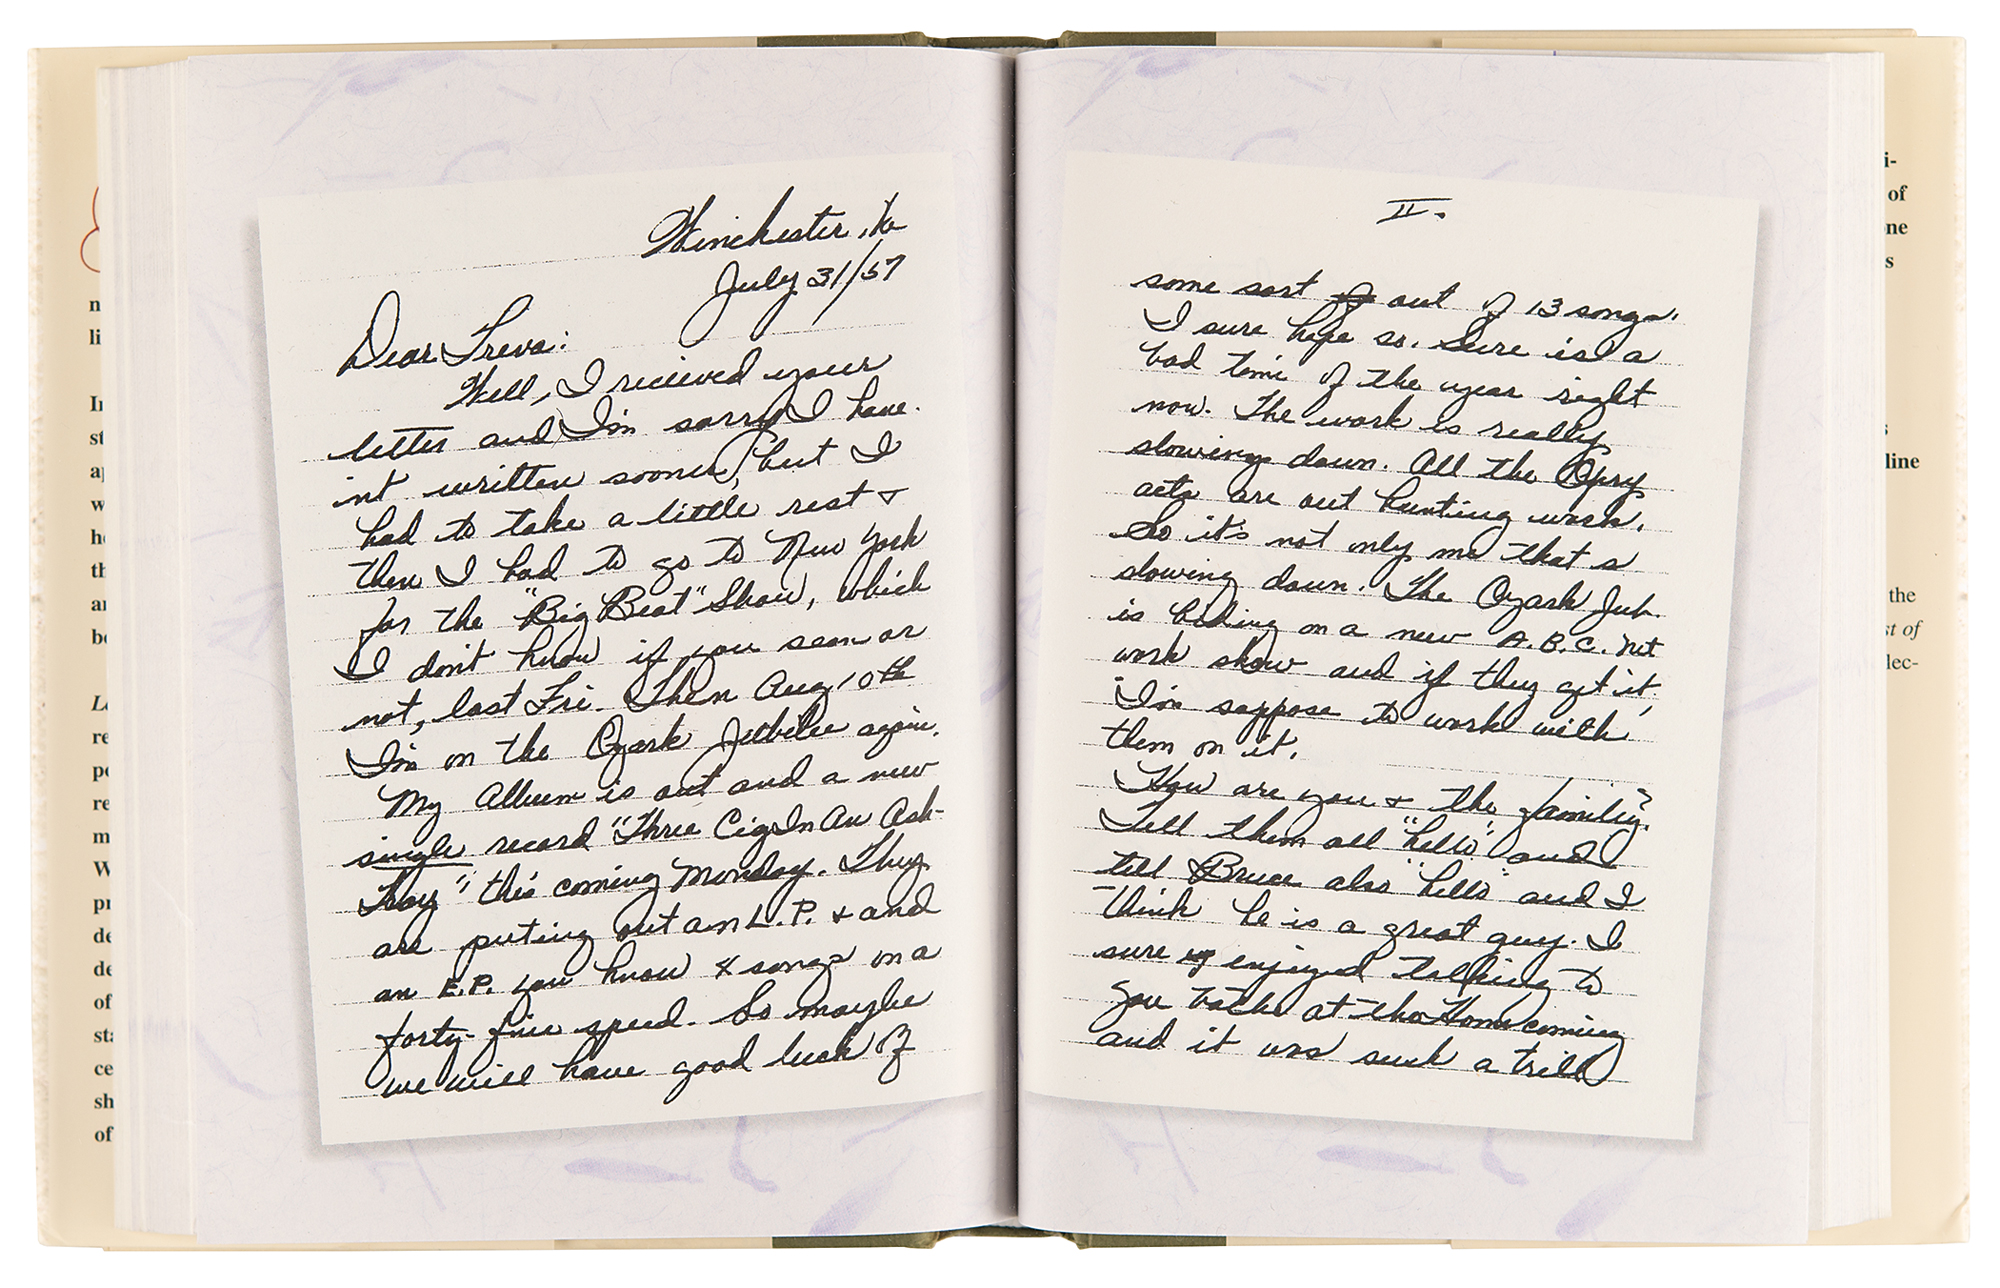 Winchester, Va
July 31/57
Dear Treva:
Well, I recieved your
letter and I'm sorry I have.
int written sooner, but I
had to take a little rest +
then I had to go to New York
for the "Big Beat" Show, which
I don't know if you seen or
not, last Fri. Then Aug, 10th
I'm on the Ozark Jubilee again.
My Album is out and a new
single record "Three Cigs In An Ash-
Tray" this coming Monday. They
are puting out an L.P. & and
an E.P. you know 4 songs on a
forty-five speed. So maybe
we will have good luck of
II.
some sort of out of 13 songs.
I sure hope so. Sure is a
bad time of the year right
now. The work is really
slowing down. All the Opry
acts are out hunting work.
So it's not only me that s
slowing down. The Ozark Jub.
is biding on a new A.B.C. net
work show and if they get it,
I'm suppose to work with
them on it.
How are you + the family?
Tell them all "hello" and
tell Bruce also "hello" and I
think he is a great guy. I
sure enjoyed talking to
you back at the Homecoming
and it was such a trill
n
li
In
st
ap
w
he
th
an
be
Le
re
po
re
m
W
pr
de
de
of
sta
ce
sh
of
i-
of
one
s
s
line
the
st of
lec-